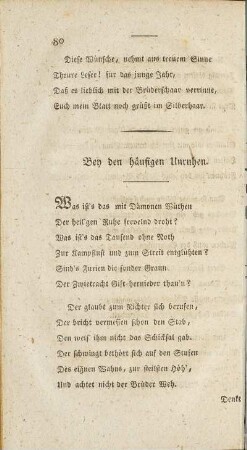 80
Diese Wünsche, nehmt aus treuem Sinne
Theure Leser! für das junge Jahr,
Daß es lieblich mit der Brüderschaar verrinne,
Euch mein Blatt noch grüßt im Silberhaar.
Bey den häufigen Unruhen.
Was ist's das mit Dämonen Wüthen
Der heil'gen Ruhe frevelnd droht?
Was ist's das Tausend ohne Noth
Zur Kampflust und zum Streit entglühten?
Sind's Furien die sonder Graun
Der Zwietracht Gift hernieder thau'n?
Der glaubt zum Richter sich berufen,
Der bricht vermessen schon den Stab,
Den weis' ihm nicht das Schicksal gab.
Der schwingt bethört sich auf den Stufen
Des eignen Wahns, zur steilsten Höh',
Und achtet nicht der Brüder Weh.
Denkt